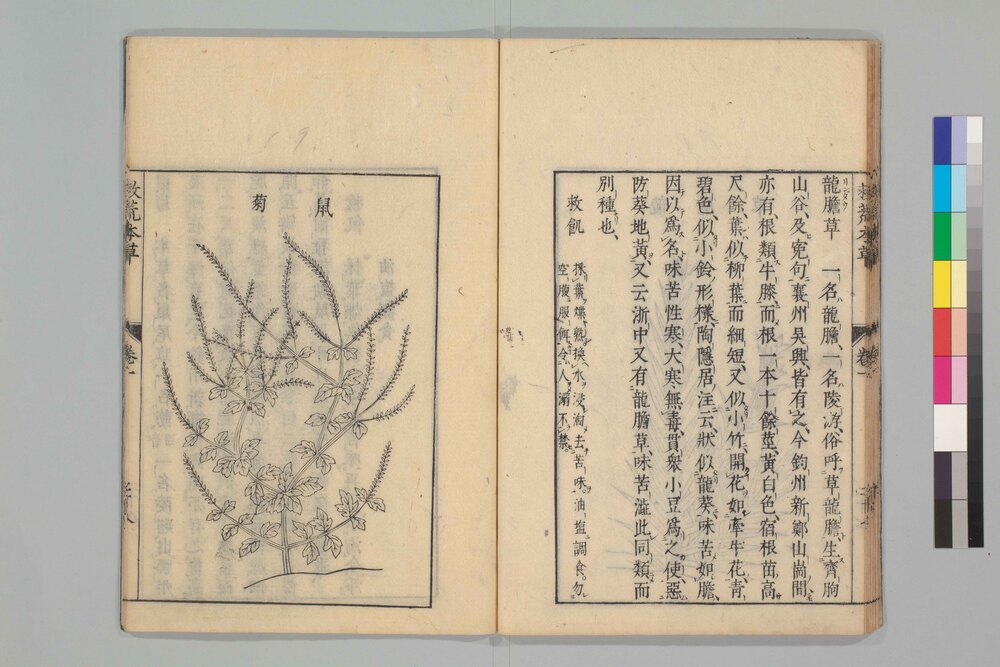 龍膽草 一名龍膽、一名陵游、俗呼草龍膽、生齊朐
山谷、及冤句、襄州吳興、皆有之、今鈞州新鄭山崗間、
亦有、根類牛膝、而根一本十餘莖、黃白色、宿根苗高
尺餘、葉似柳葉而細短、又似小竹、開花如牽牛花、靑
碧色、似小鈴形樣、陶隱居注云、狀似龍葵、味苦如膽、
因以爲名、味苦、性寒、大寒、無毒、貫衆小豆爲之使、惡
防葵地黃、又云、浙中又有龍膽草、味苦澁、此同類而
別種也、
救飢 採葉煠熟換水浸淘去苦味油鹽調食勿
空腹服餌令人溺不禁
鼠
菊
救荒本草
卷一